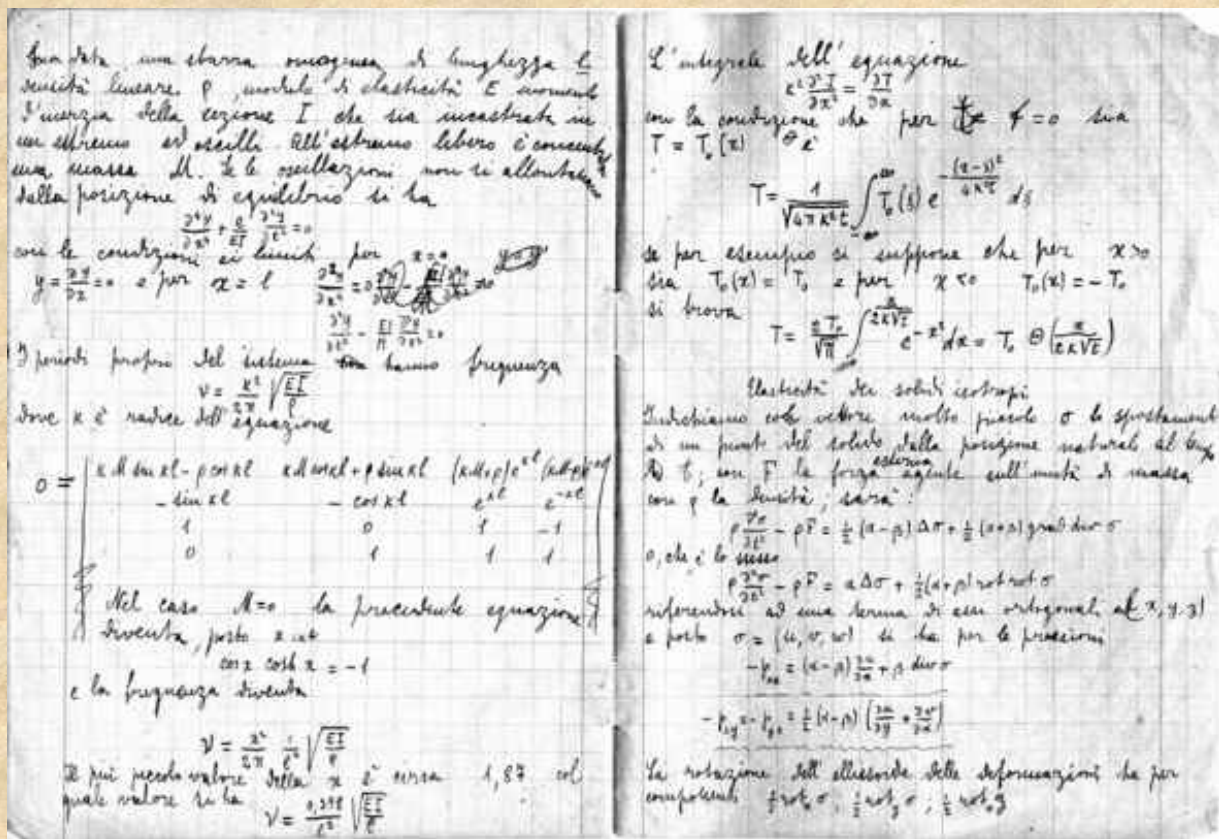 data una sbarra omogenea di lunghezza l
densità lineare ρ, modulo di elasticità E momento
d'inerzia della sezione I che sia incastrata in
un estremo ed oscilli. All'estremo libero è
una massa M. Se le oscillazioni non si allontanano
dalla posizione di equilibrio si ha
∂⁴y/∂x⁴ + ρ/EI ∂²y/∂t² = 0
con le condizioni ai limiti per x=0
y = ∂y/∂x = 0 e per x = l
I periodi propri del sistema hanno frequenza
ν = κ²/2π √(EI/ρ)
dove κ è radice dell'equazione
0 = | κM sin κl - ρ cos κl   κM cos κl + ρ sin κl   (κM+ρ)e^κl
- sin κl   - cos κl   e^κl   e^-κl
1   0   1   -1
0   1   1   1
Nel caso M=0 la precedente equazione
diventa, posto
cos x cosh x = -1
e la frequenza diventa
ν = x²/2π 1/l² √(EI/ρ)
Il più piccolo valore della x è circa 1,87 col
quale valore si ha
ν = /l² √(EI/ρ)
L'integrale dell'equazione
κ² ∂²T/∂x² = ∂T/∂t
con la condizione che per t=0 sia
T = T₀(x) è
T = 1/√(4πκ²t) ∫ T₀(ξ) e^(-(x-ξ)²/4κ²t) dξ
se per esempio si suppone che per x>0
sia T₀(x) = T₀ e per x<0 T₀(x) = -T₀
si trova
T = 2T₀/√π ∫ e^-x² dx = T₀ Θ(x/2κ√t)
Elasticità dei solidi isotropi
Indichiamo col vettore molto piccolo σ lo spostamento
di un punto del solido dalla posizione naturale al tempo
t; con F la forza esterna agente sull'unità di massa
con ρ la densità; sarà:
ρ ∂²σ/∂t² - ρF = ½(α-β)Δσ + ½(α+β) grad div σ
o, che è lo stesso
ρ ∂²σ/∂t² - ρF = αΔσ + ½(α+β) rot rot σ
riferendosi ad una terna di assi ortogonali (x,y,z)
e posto σ = (u,v,w) si ha per le pressioni
-pₓₓ = (α-β) ∂u/∂x + β div σ
-pₓᵧ = -pᵧₓ = ½(α-β) (∂u/∂y + ∂v/∂x)
La rotazione dell'ellissoide delle deformazioni ha per
componenti ½ rotₓ σ; ½ rotᵧ σ;